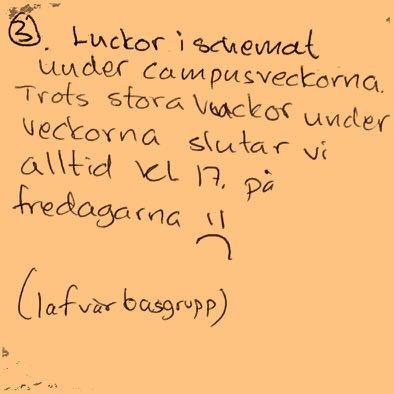 3. Luckor i schemat
under campusveckorna.
Trots stora luckor under
veckorna slutar vi
alltid kl 17. på
fredagarna :(
(i af vår basgrupp)